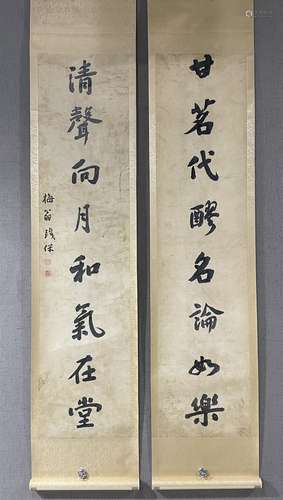 甘茗代醪名論如樂
清聲向月和氣在堂
梅翁錢保